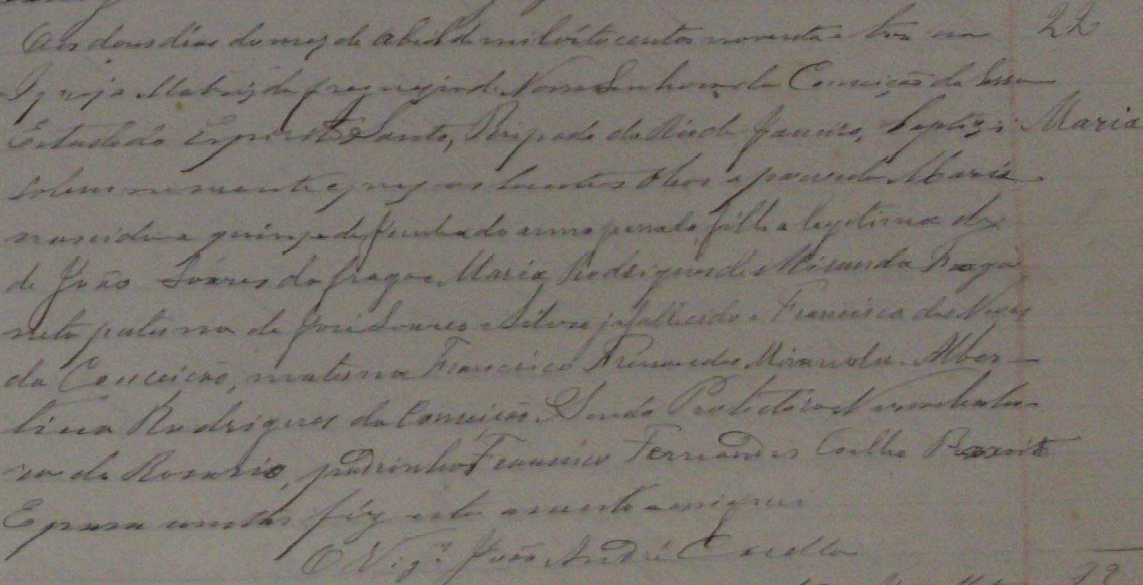 Aos dous dias do mez de Abril de mil oito centos noventa e tres na 22
Igreja Matriz da freguezia de Nossa Senhora da Conceição da Serra
Estado do Espirito Santo, Bispado do Rio de Janeiro, baptizei Maria
solemnemente e puz os Santos Oleos a parvula Maria
nascida a quinze de Junho do anno passado filha legitima de
de João Soares da fraga e Maria Rodrigues de Miranda Fraga
neta paterna de José Soares e Silva ja fallecido e Francisca das Neves
da Conceição, materna Francisco Fernandes Miranda Alber-
tina Rodrigues da Conceição Sendo Protectora Nossa Senho-
ra do Rosario, padrinho Francisco Fernandes Coelho
E para constar fiz este assento e assignei
O Vigº João André Casella